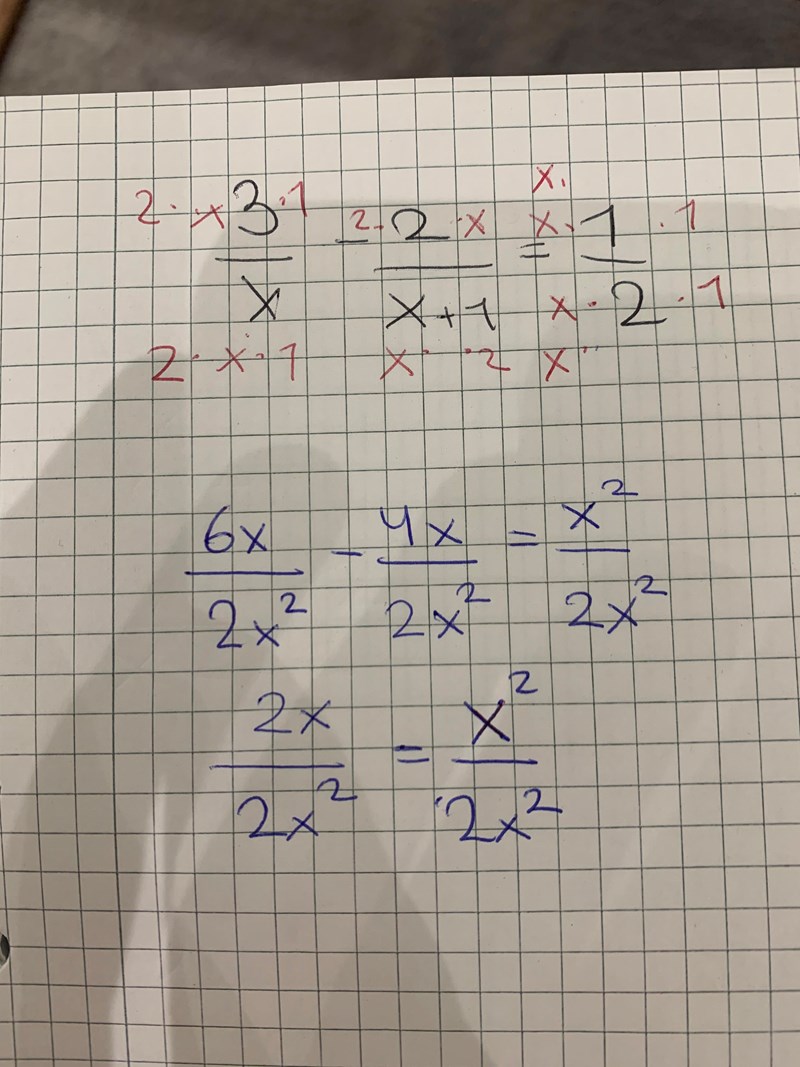 x.
2 · x 3 · 1 - 2 · 2 · x = x · 1 · 1
x x + 1 x · 2 · 1
2 · x · 1 x · · 2 x ·
6x/2x² - 4x/2x² = x²/2x²
2x/2x² = x²/2x²